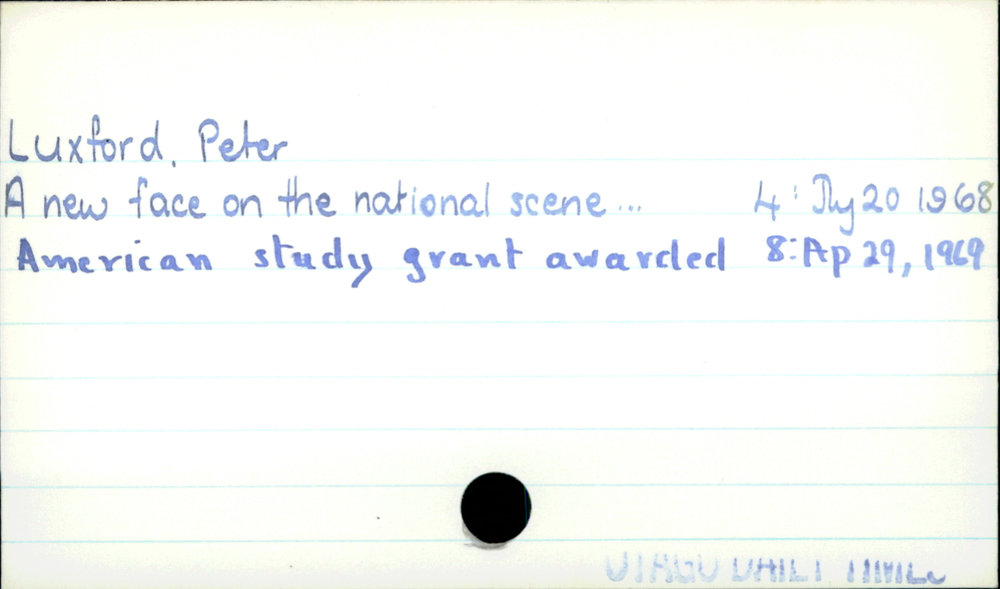 Luxford, Peter
A new face on the national scene... 4: Jly 20 1968
American study grant awarded 8: Ap 29, 1969
OTAGO DAILY TIMES